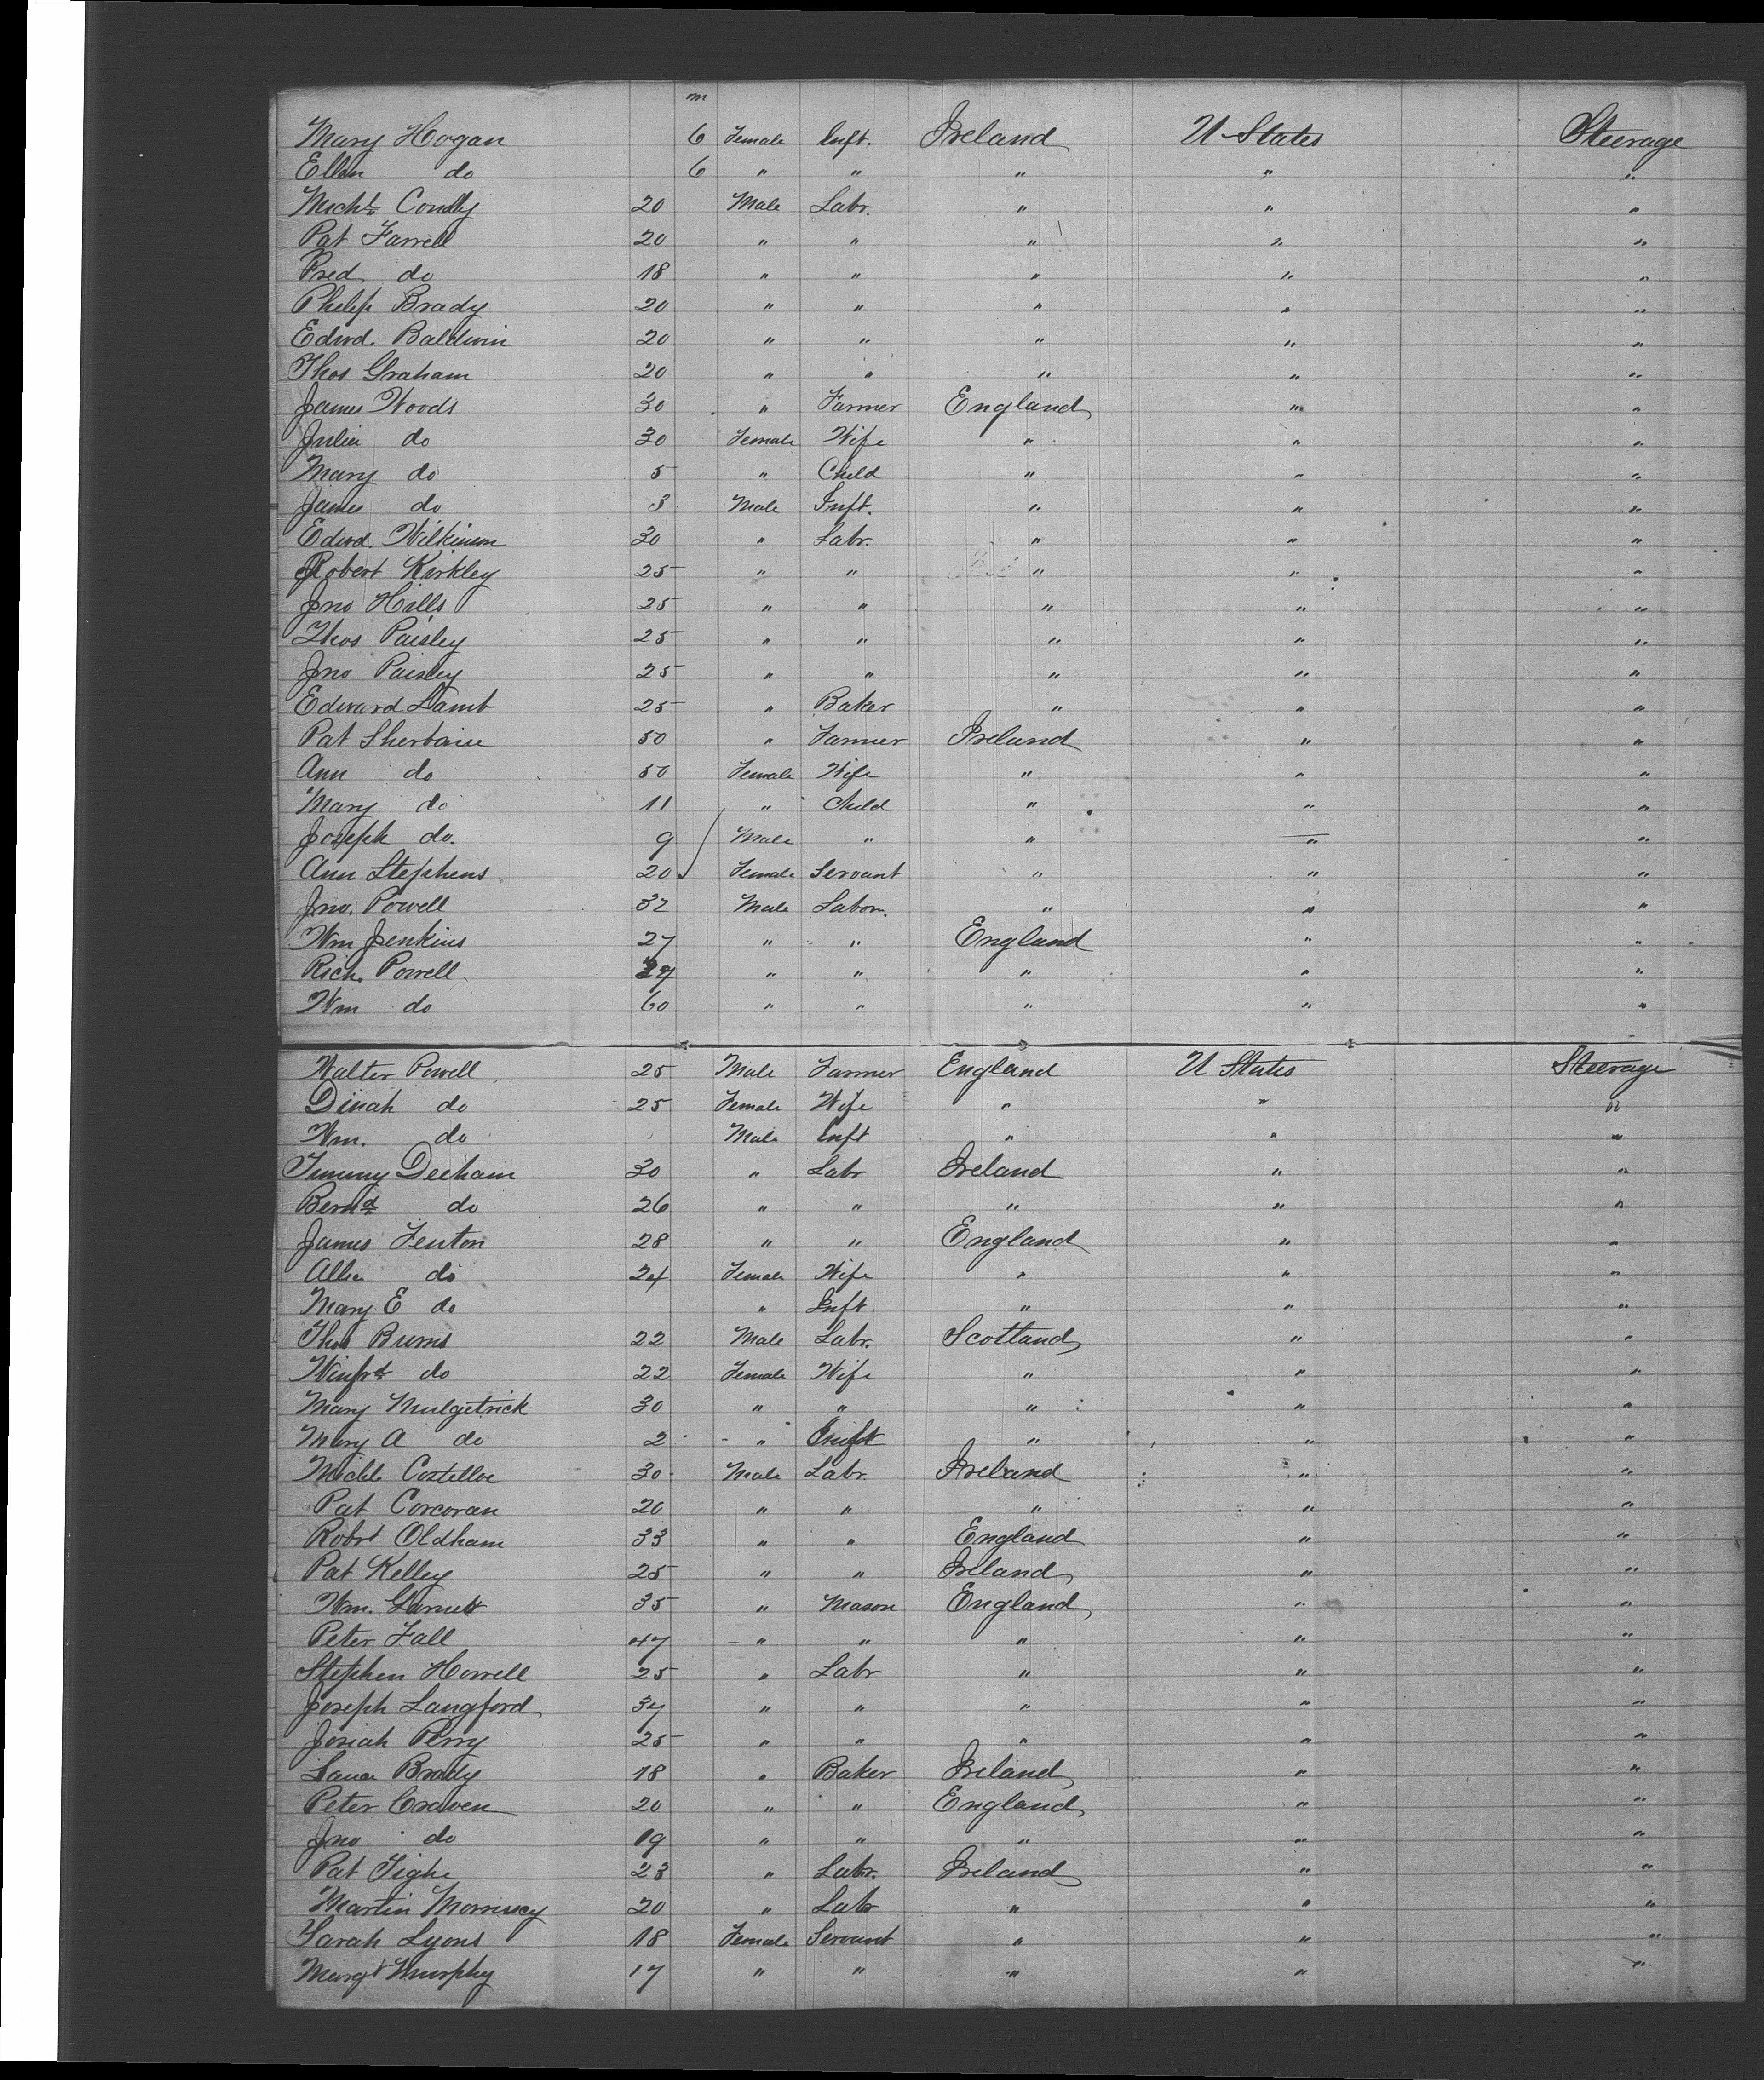 m
Mary Hogan 6 Female Inft. Ireland U States Steerage
Ellen do 6 " " " " "
Michl Conelly 20 Male Labr. " " "
Pat Farrell 20 " " " " "
Fred do 18 " " " " "
Philip Brady 20 " " " " "
Edwd. Baldwin 20 " " " " "
Thos Graham 20 " " " " "
James Woods 30 " Farmer England " "
Julia do 30 Female Wife " " "
Mary do 5 " Child " " "
James do 3 Male Inft. " " "
Edwd. Wilkinson 30 " Labr. " " "
Robert Kirkley 25 " " " " "
Jno Hills 25 " " " " "
Thos Paisley 25 " " " " "
Jno Paisley 25 " " " " "
Edward Lamb 25 " Baker " " "
Pat 50 " Farmer Ireland " "
Ann do 50 Female Wife " " "
Mary do 11 " Child " " "
Joseph do. 9 Male " " " "
Ann Stephens 20 Female Servant " " "
Jno. Powell 32 Male Labor. " " "
Wm Jenkins 27 " " England " "
Rich. Powell " " " " "
Wm do 60 " " " " "
Walter Powell 25 Male Farmer England U States Steerage
Dinah do 25 Female Wife " " "
Wm. do Male Inft " " "
Deeham 30 " Labr Ireland " "
Bernd do 26 " " " " "
James Fenton 28 " " England " "
do 24 Female Wife " " "
Mary E do " Inft " " "
Thos Burns 22 Male Labr. Scotland " "
do 22 Female Wife " " "
Mary Mulgetrick 30 " " " " "
Mary A do 2 " Inft " " "
Michl Costelloe 30 Male Labr. Ireland " "
Pat Corcoran 20 " " " " "
Robt Oldham 33 " " England " "
Pat Kelley 25 " " Ireland " "
Wm. Garnett 35 " Mason England " "
Peter Fall 47 " " " " "
Stephen Howell 25 " Labr " " "
Joseph Langford 34 " " " " "
Josiah Perry 25 " " " " "
Brady 18 " Baker Ireland " "
Peter Craven 20 " " England " "
Jno do 19 " " " " "
Pat Tighe 23 " Labr. Ireland " "
Martin Morrissey 20 " Labr " " "
Sarah Lyons 18 Female Servant " " "
Margt Murphy 17 " " " " "